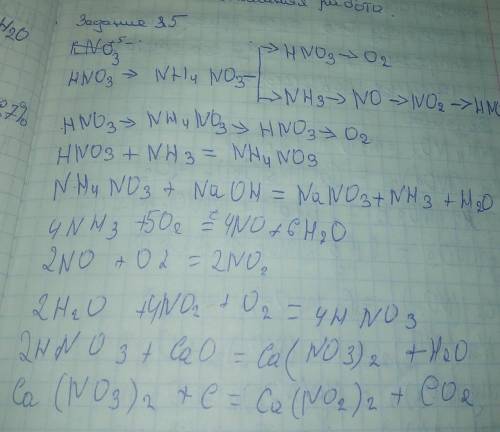 работа.
H2O
Задание 35
KNO3 +5
→ HNO3 → O2
HNO3 → NH4 NO3 –
→ NH3 → NO → NO2 → HNO
7%
HNO3 → NH4NO3 → HNO3 → O2
HNO3 + NH3 = NH4NO3
NH4 NO3 + NaOH = NaNO3 + NH3 + H2O
4NH3 + 5O2 =t 4NO + 6H2O
2NO + O2 = 2NO2
2H2O + 4NO2 + O2 = 4HNO3
2HNO3 + CaO = Ca(NO3)2 + H2O
Ca(NO3)2 + C = Ca(NO2)2 + CO2